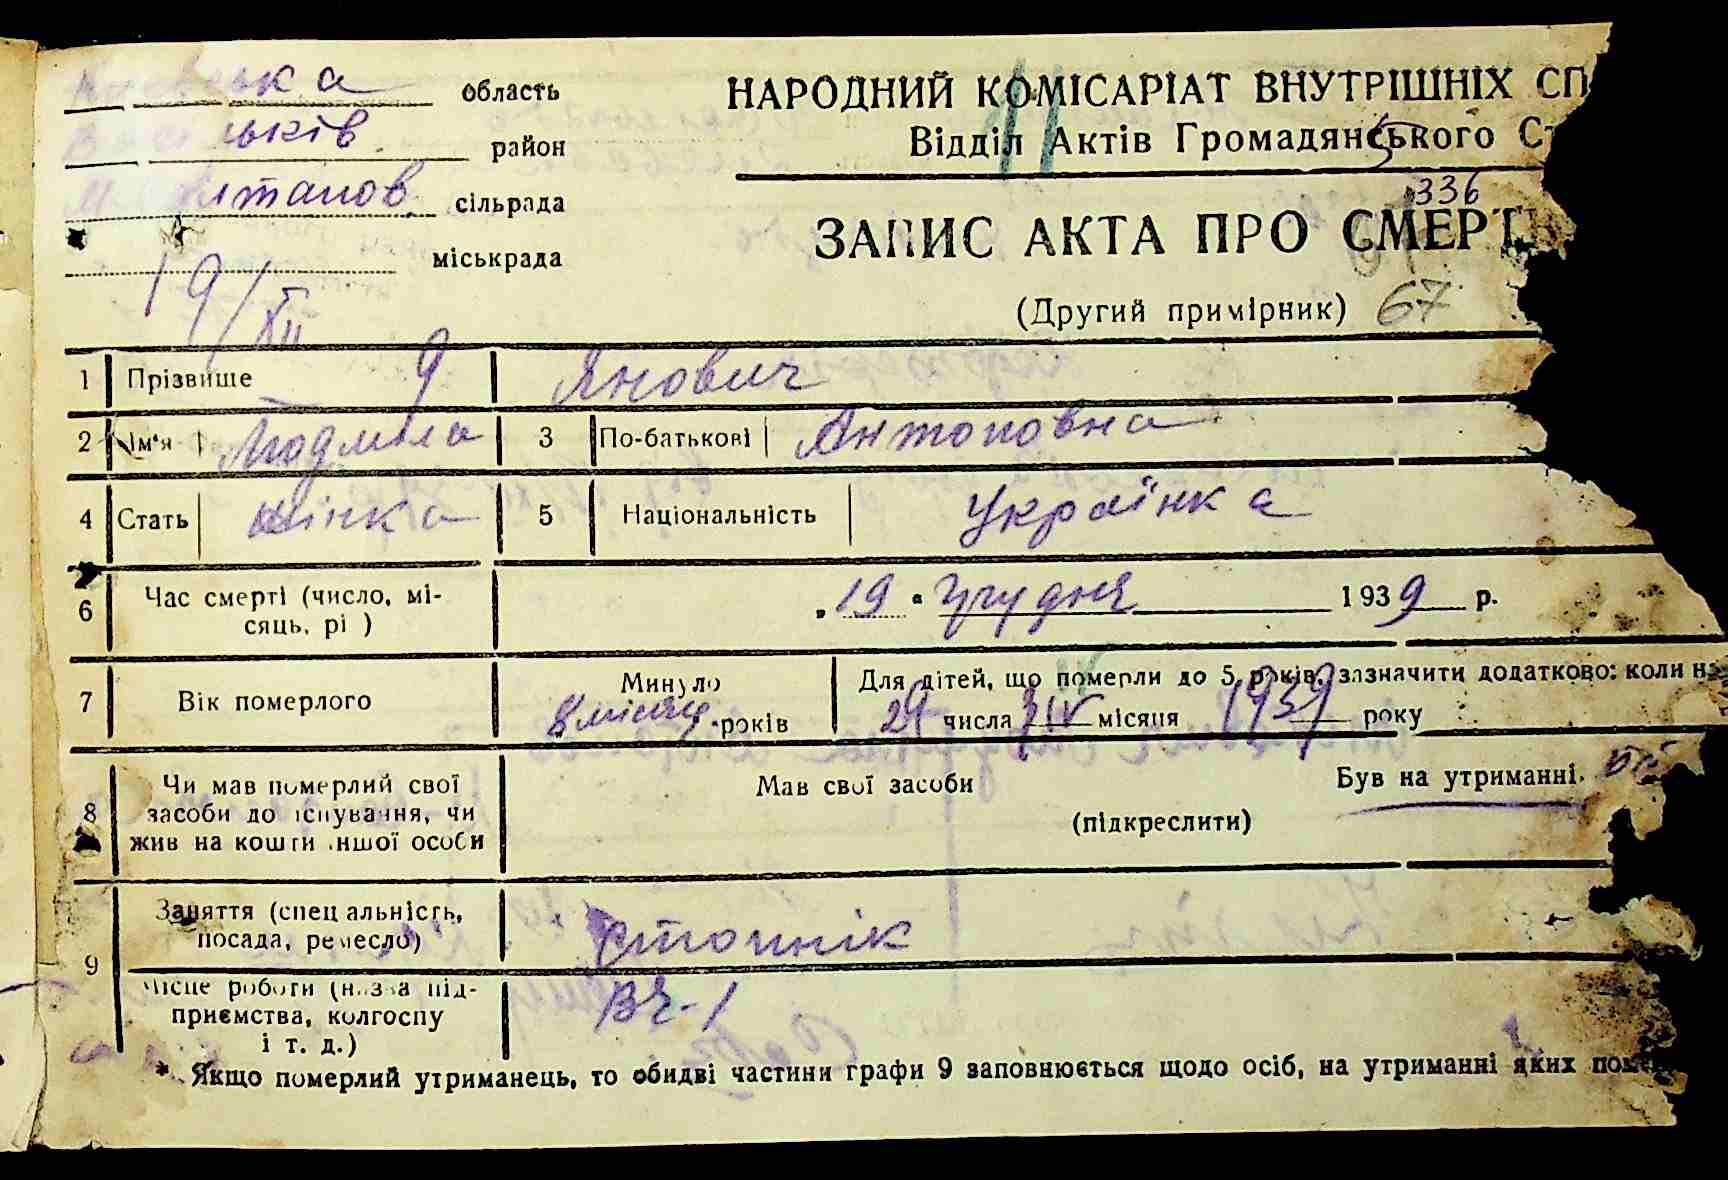 ська область
ьків район
лтанов сільрада
міськрада
19/XII
НАРОДНИЙ КОМІСАРІАТ ВНУТРІШНІХ СП
Відділ Актів Громадянського С
336
ЗАПИС АКТА ПРО СМЕРТ
(Другий примірник) 67
1 Прізвище 9 Янович
2 Ім'я Людміла 3 По-батькові Антоновна
4 Стать жінка 5 Національність Українка
6 Час смерті (число, мі-
сяць, рі ) „ 19 " грудня 1939 р.
7 Вік померлого Минуло 8 місяц років Для дітей, що померли до 5 років, зазначити додатково: коли н
29 числа IV місяця 1939 року
8 Чи мав померлий свої
засоби до існування, чи
жив на кошти іншої особи
Мав свої засоби Був на утриманні.
(підкреслити)
9 Заняття (спеціальність,
посада, ремесло)
Місце роботи (назва під-
приємства, колгоспу
і т. д.)
ВЧ-1
* Якщо померлий утриманець, то обидві частини графи 9 заповнюється щодо осіб, на утриманні яких пом